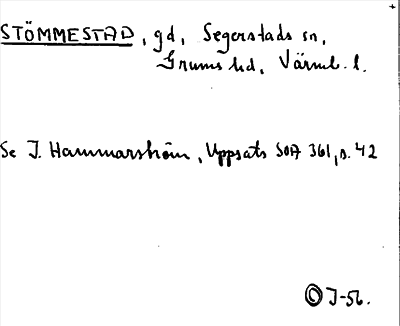 STÖMMESTAD, gd, Segerstads sn,
Grums hd, Värml. l.
Se I. Hammarström, Uppsats SOA 361, s. 42
© I-56.